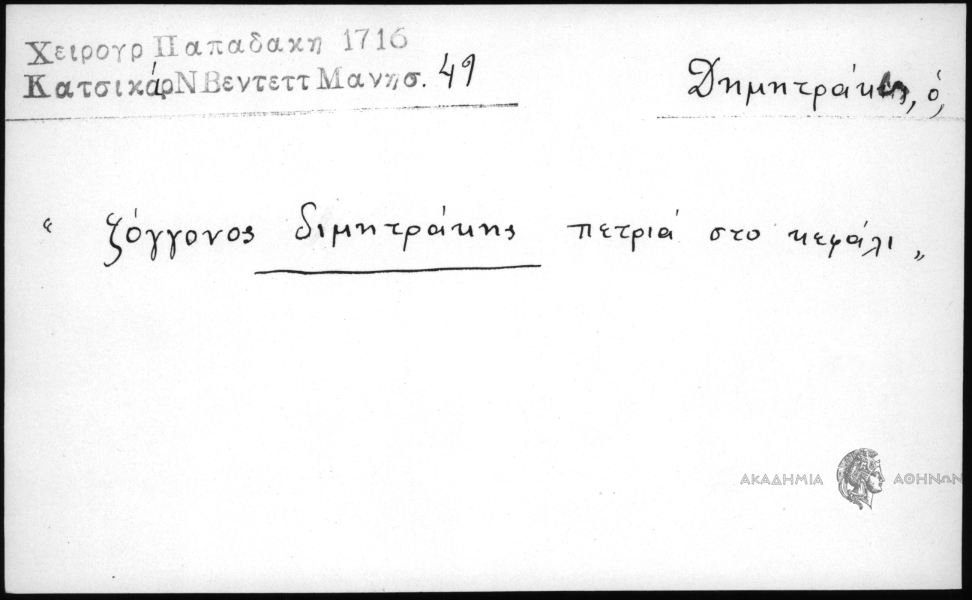 Χειρογρ Παπαδακη 1716
Κατσικάρ Ν Βεντεττ Μανης σ. 49
Δημητράκης, ὁ,
“ ζόγγονος διμητράκης πετριά στο κεφάλι „
ΑΚΑΔΗΜΙΑ ΑΘΗΝΩΝ